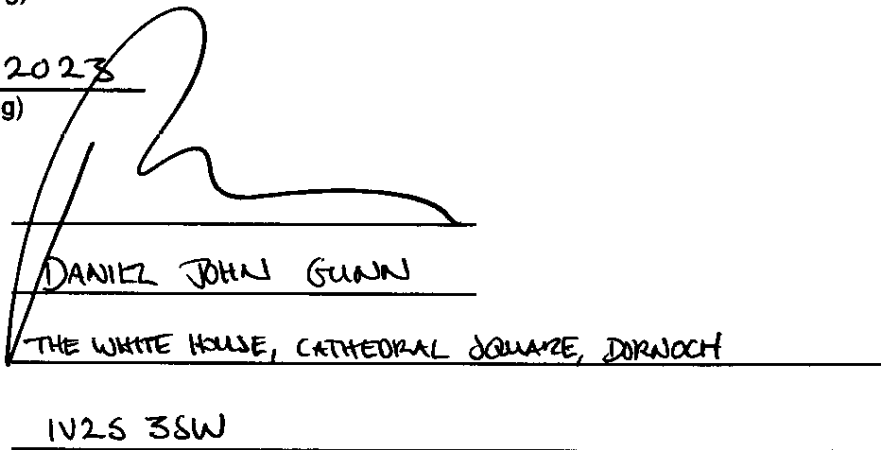 2023
g)
DANIEL JOHN GUNN
THE WHITE HOUSE, CATHEDRAL SQUARE, DORNOCH
IV25 3SW